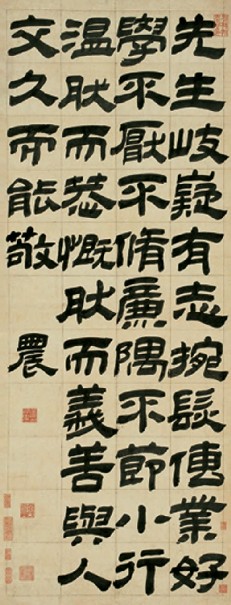 先生岐嶷有志捥髮傳業好
學不厭不脩廉隅不節小行
溫肰而恭慨肰而義善與人
交久而能敬
農